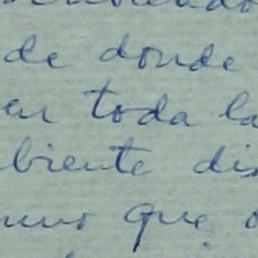 de donde
en toda la
biente dis
que